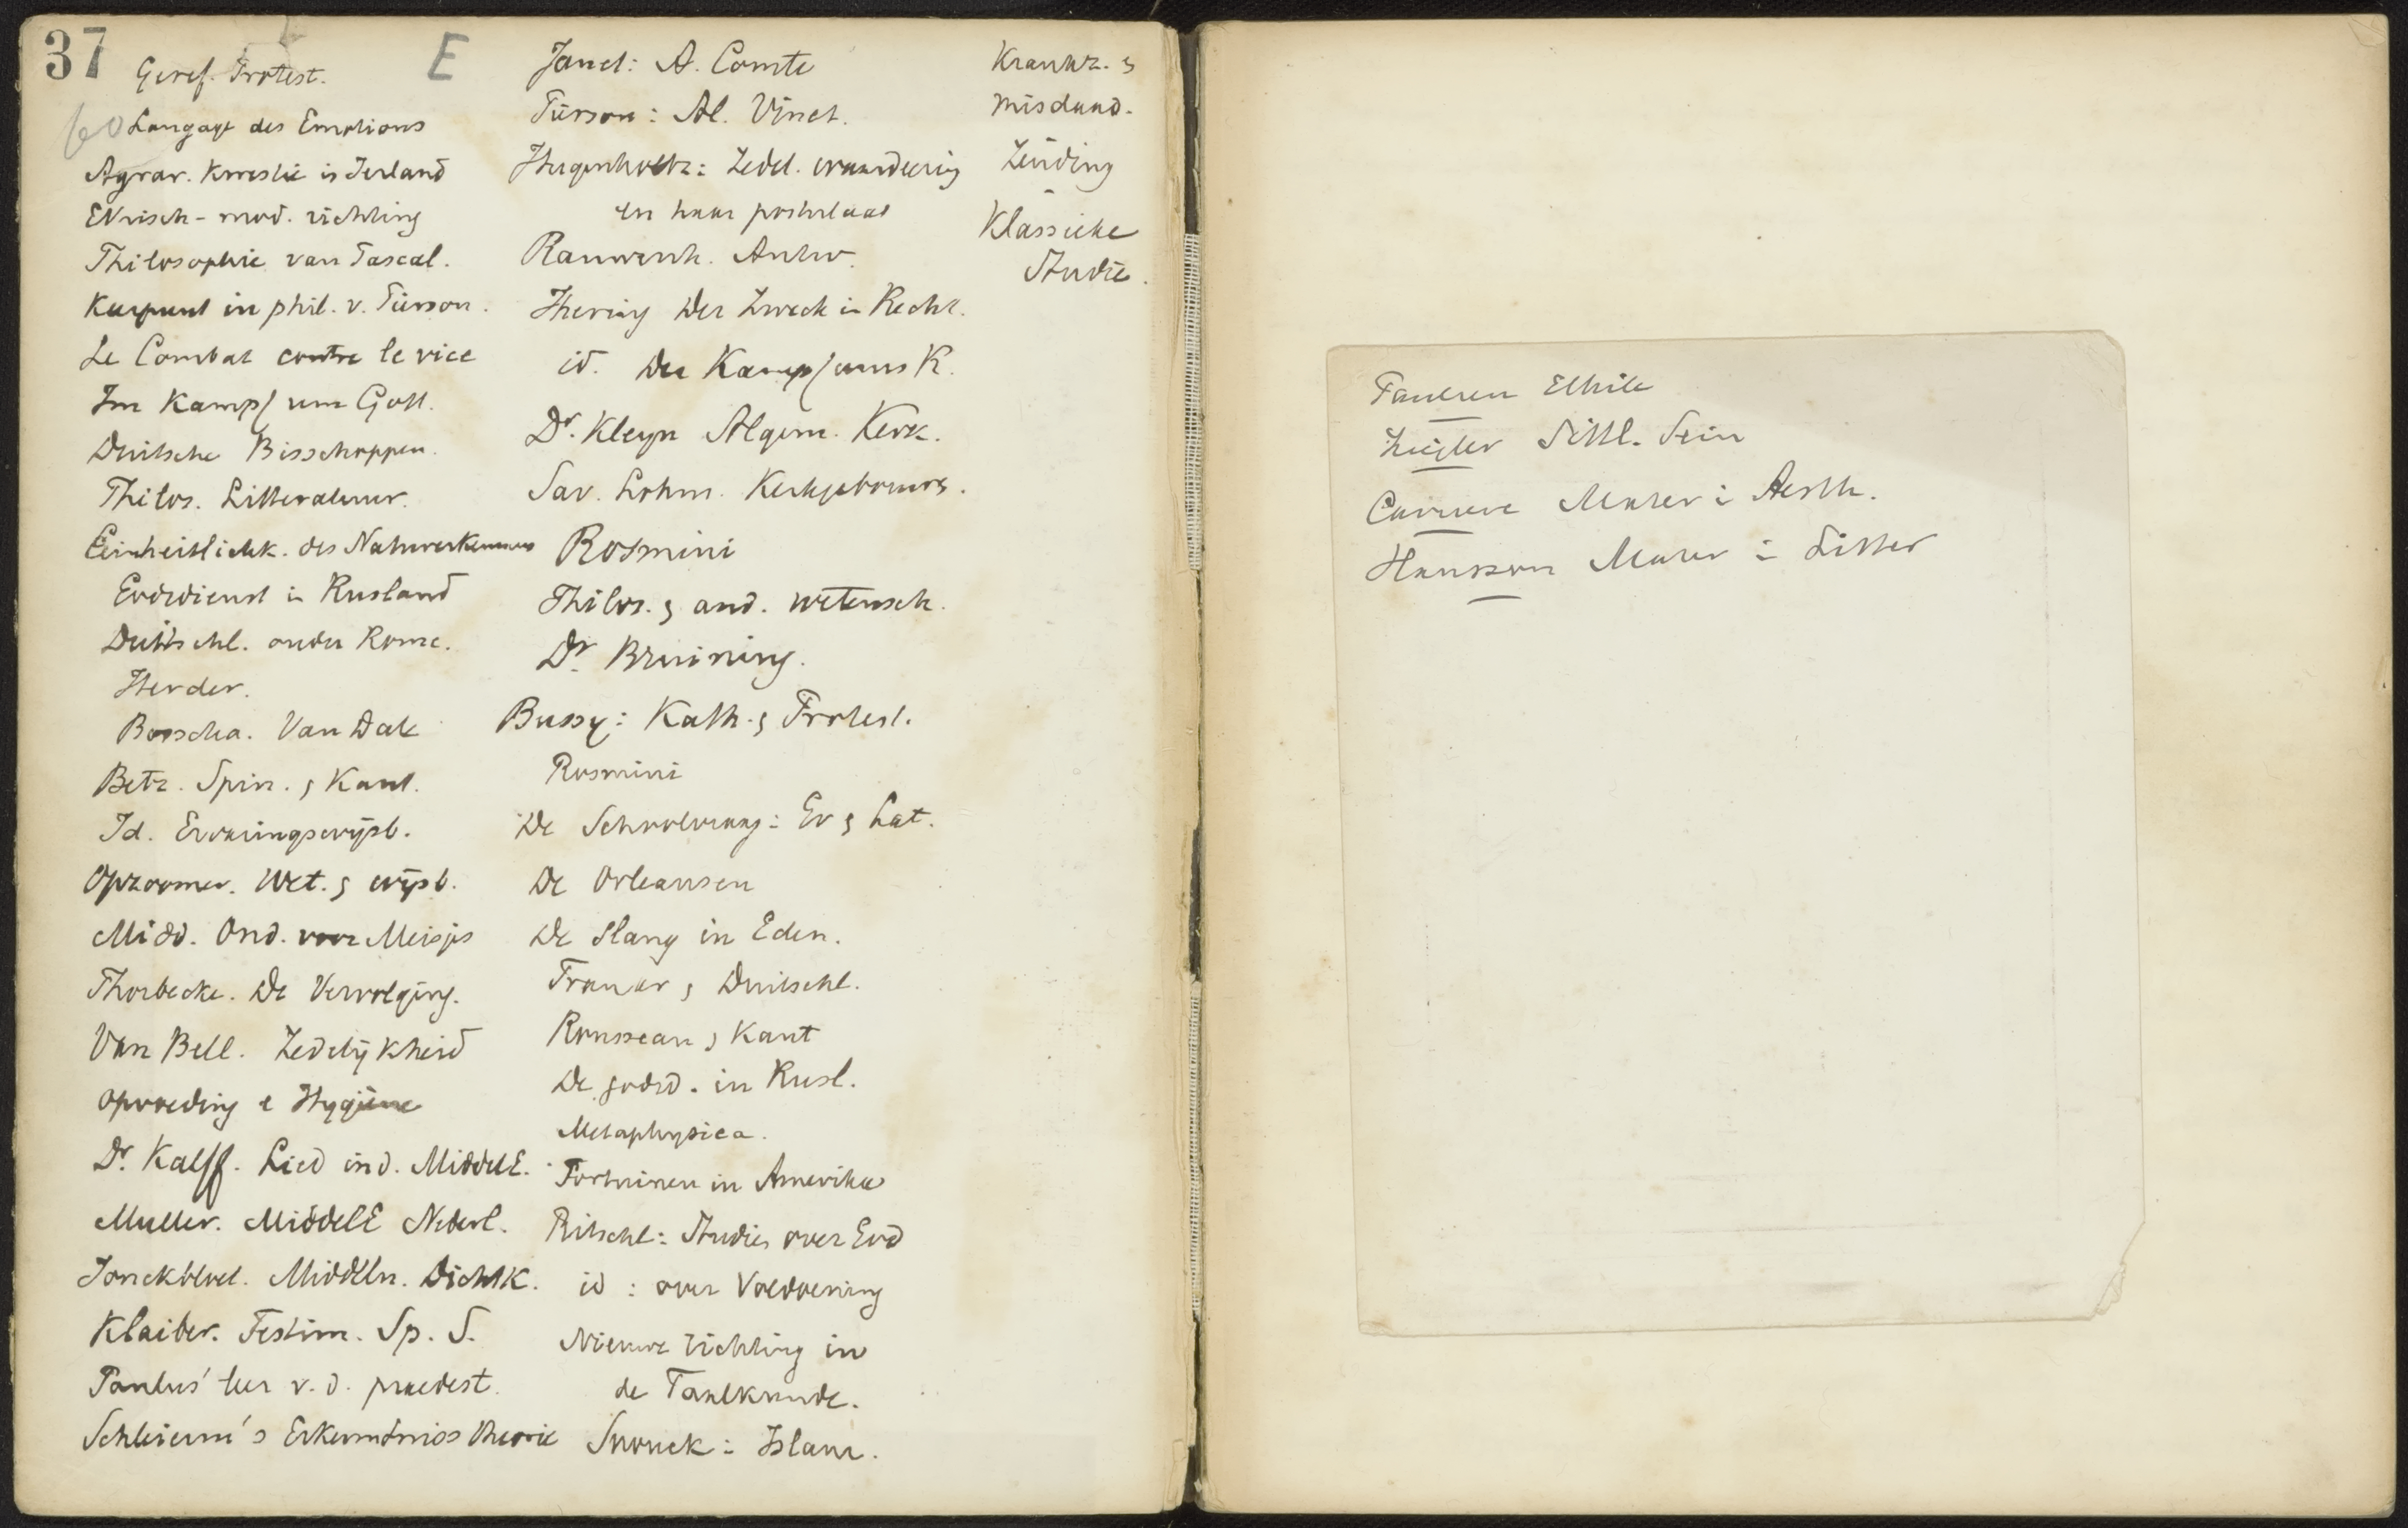 37
E
Geref. Protest.
60
Langage des Emotions
Agrar. Kwestie in Ierland
Ethisch-mod. richting
Philosophie van Pascal.
Keerpunt in phil. v. Pierson.
Le Combat contre le vice
Im Kampf um Gott.
Duitsche Bisschoppen.
Philos. Litteratuur.
Einheitlichk. des Naturerkennens
Godsdienst in Rusland
Duitschl. onder Rome.
Herder.
Bosscha. Van Dale
Betz. Spin. & Kant.
Id. Ervaringswijsb.
Opzoomer. Wet. & wijsb.
Midd. Ond. voor Meisjes
Thorbecke. De Vervolging.
Van Bell. Zedelijkheid
Opvoeding e Hygiene
Dr. Kalff. Lied in d. MiddelE.
Muller. MiddelE Nederl.
Jonckbloet. Middeln. Dichtk.
Klaiber. Testim. Sp. S.
Paulus' leer v. d. praedest.
Schleierm's Erkenntniss theorie
Janet: A. Comte
Pierson: Al. Vinet.
Hugenholtz: Zedel. waardeering
en haar postulaat
Rauwenh. Antw.
Ihering Der Zweck in Recht.
id. Der Kampf ums R.
Dr. Kleyn Algem. Kerk.
Sav. Lohm. Kerkgebouwen.
Rosmini
Philos. & and. wetensch.
Dr. Bruining.
Bussy: Kath. & Protest.
Rosmini
De Schoolvraag: Ev & Lat.
De Orleansen
De Slang in Eden.
Frankr & Duitschl.
Rousseau & Kant
De godsd. in Rusl.
Metaphysica.
Fortuinen in Amerika
Ritschl: Studies over God
id: over Voldoening
Nieuwe richting in
de Taalkunde.
Snouck: Islam.
Krankz. &
misdaad.
Zending
-
Klassieke
Studie.
Paulsen Ethik
Ziegler Sittl. Sein
Carriere Mater i Aesth.
Hansson Mater i Litter